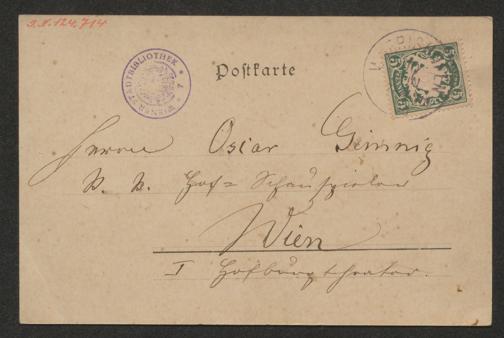 J.N. 124.714
WIENER STADTBIBLIOTHEK
Postkarte
5
Herrn Oscar Gimnig
K. K. Hof=Schauspieler
Wien
I Hofburgtheater.